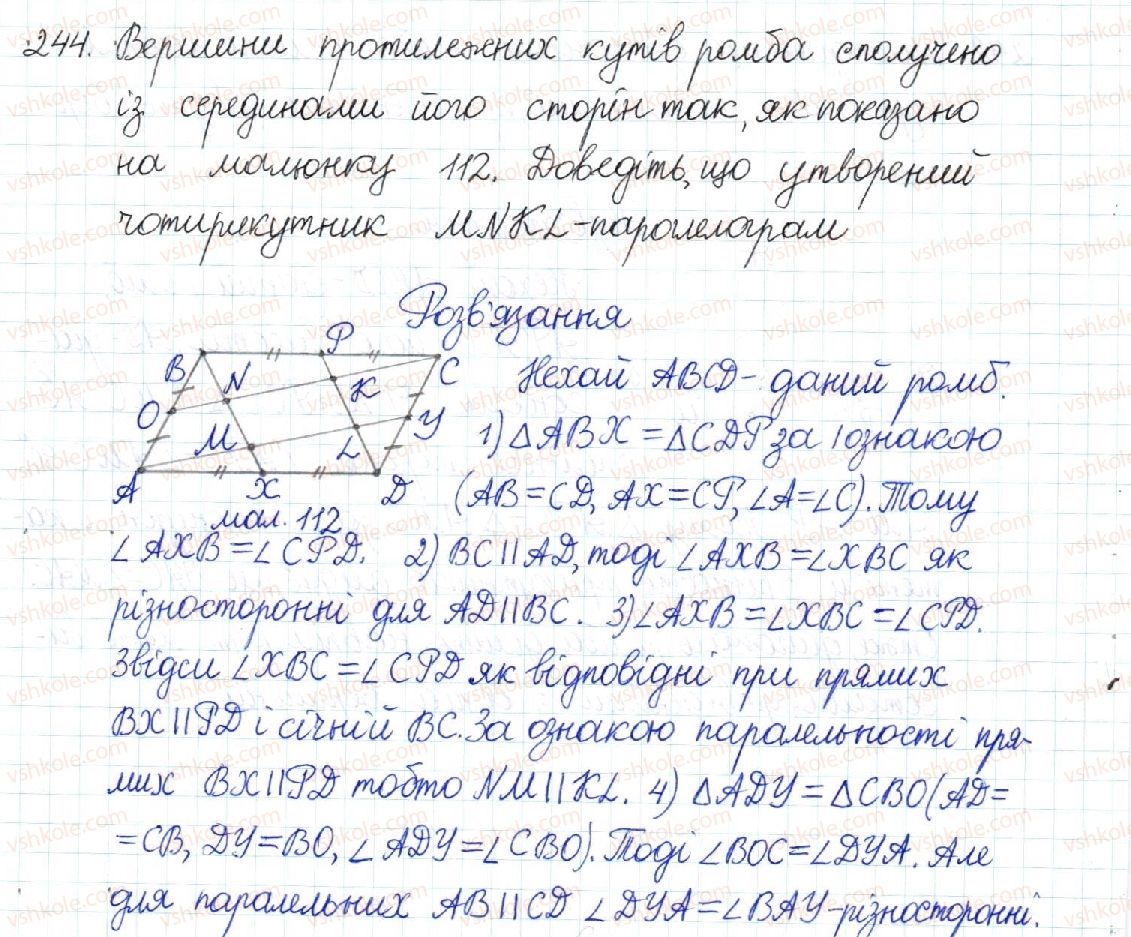 244. Вершини протилежних кутів ромба сполучено
із серединами його сторін так, як показано
на малюнку 112. Доведіть, що утворений
чотирикутник MNKL - паралелограм
Розв'язання
B P C
N K
O Y
M L
A X D
мал. 112
Нехай ABCD - даний ромб.
1) △ABX = △CDP за I ознакою
(AB = CD, AX = CP, ∠A = ∠C). Тому
∠AXB = ∠CPD. 2) BC || AD, тоді ∠AXB = ∠XBC як
різносторонні для AD || BC. 3) ∠AXB = ∠XBC = ∠CPD.
Звідси ∠XBC = ∠CPD як відповідні при прямих
BX || PD і січній BC. За ознакою паралельності пря-
мих BX || PD тобто NM || KL. 4) △ADY = △CBO (AD =
= CB, DY = BO, ∠ADY = ∠CBO). Тоді ∠BOC = ∠DYA. Але
для паралельних AB || CD ∠DYA = ∠BAY - різносторонні.